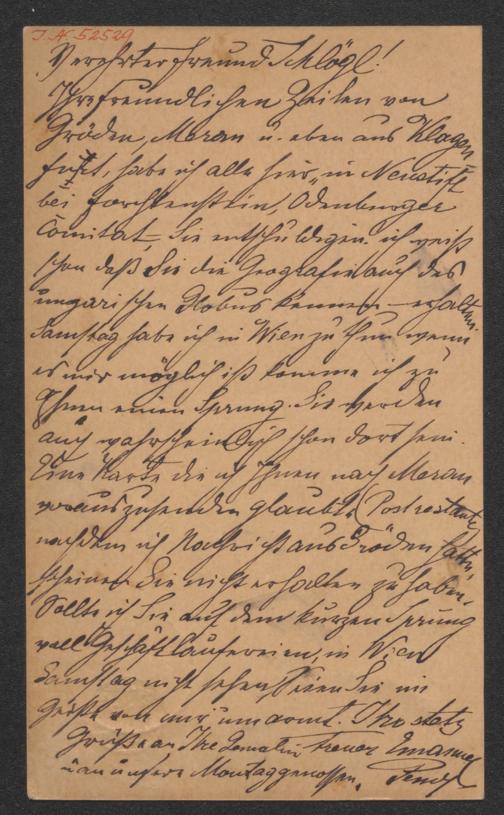 J.N. 52529
Verehrter Freund Schlögl!
Ihre freundlichen Zeilen von
Gröden, Meran u. eben aus Klagen=
furt, habe ich alle hier, in Neustift
bei Forchtenstein, Ödenburger
Comitat – Sie entschuldigen ich weiß
schon daß Sie die Geografie auch des
ungarischen Globus kennen – erhalten
Samstag habe ich in Wien zu thun wenn
es mir möglich ist komme ich zu
Ihnen einen Sprung. Sie werden
auch wahrscheinlich schon dort sein.
Eine Karte die ich Ihnen nach Meran
vorauszusenden glaubte (Postrestante,
nachdem ich Nachricht aus Gröden hatte,
scheinen Sie nicht erhalten zu haben.
Sollte ich Sie auf dem kurzen Sprung
voll Geschäftlaufereien, in Wien
Samstag nicht sehen, seien Sie im
Geiste von mir umarmt. Ihr stets
Grüße an Ihre Gemalin treuer Emanuel
u an unsere Montaggenossen. Pendl